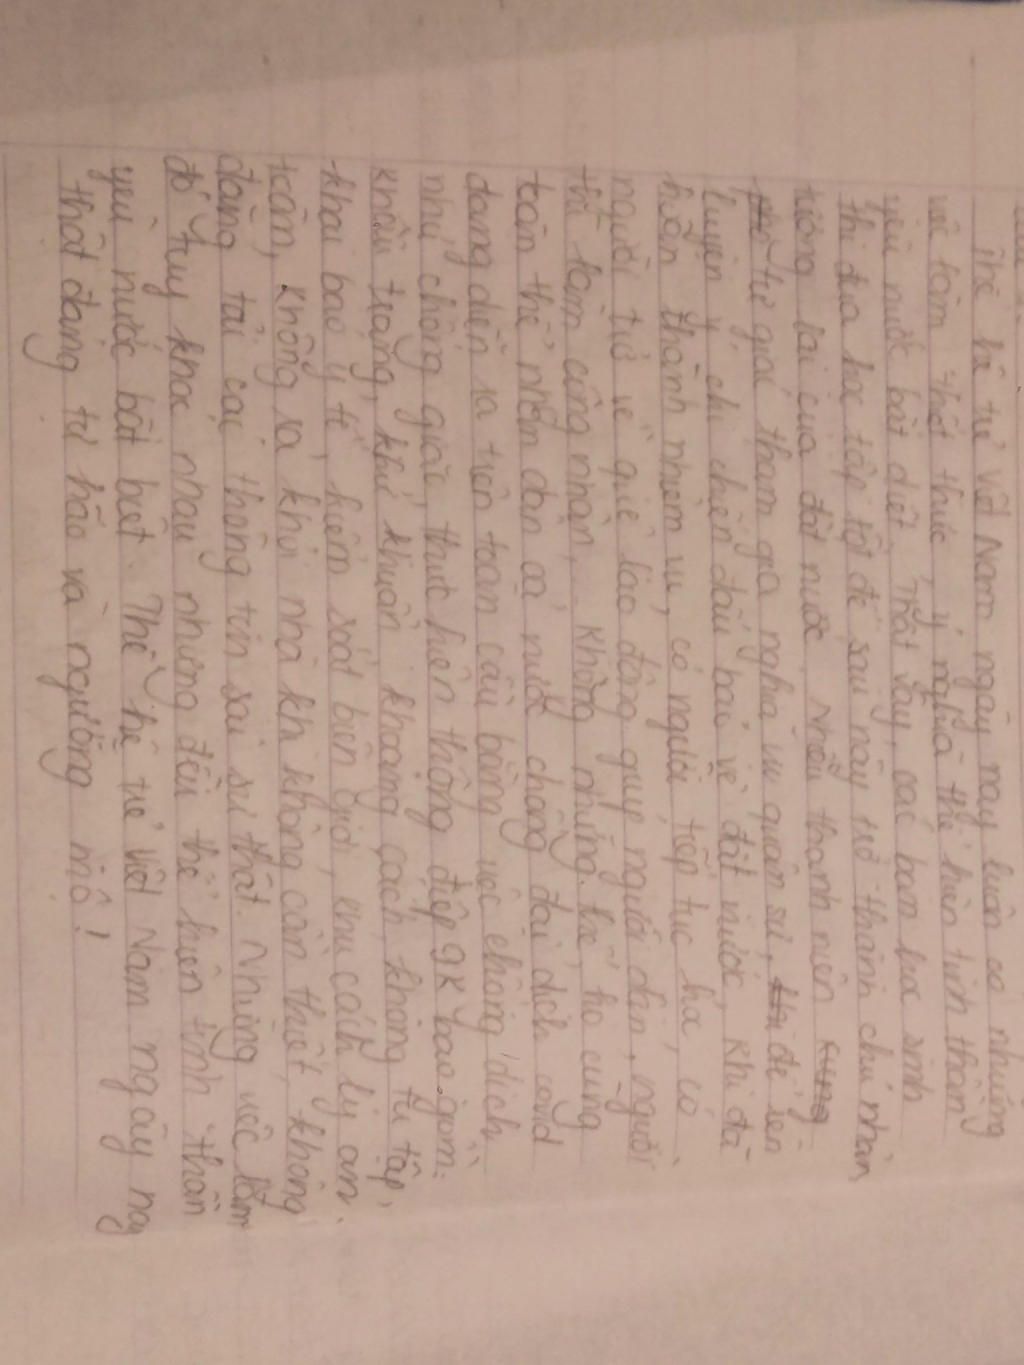 Thế hệ trẻ Việt Nam ngày nay luôn có những
việc làm thiết thực ý nghĩa thể hiện tinh thần
yêu nước bất diệt. Thật vậy, các bạn học sinh
thi đua học tập tốt để sau này trở thành chủ nhân
tương lai của đất nước. Nhiều thanh niên
tự giác tham gia nghĩa vụ quân sự, để rèn
luyện ý chí chiến đấu bảo vệ đất nước, khi đã
hoàn thành nhiệm vụ, có người tiếp tục học, có
người trở về quê lao động giúp người dân, người
thì làm công nhân,... Không những thế, họ cùng
toàn thể nhân dân cả nước chống đại dịch covid
đang diễn ra trên toàn cầu bằng việc chống dịch
như chống giặc, thực hiện thông điệp 9K bao gồm:
khẩu trang, khử khuẩn, khoảng cách, không tụ tập,
khai báo y tế, kiểm soát biên giới, khu cách ly an
toàn, không ra khỏi nhà khi không cần thiết, không
đăng tải các thông tin sai sự thật. Những việc làm
đó tuy khác nhau nhưng đều thể hiện tinh thần
yêu nước bất biệt. Thế hệ trẻ Việt Nam ngày nay
thật đáng tự hào và ngưỡng mộ!